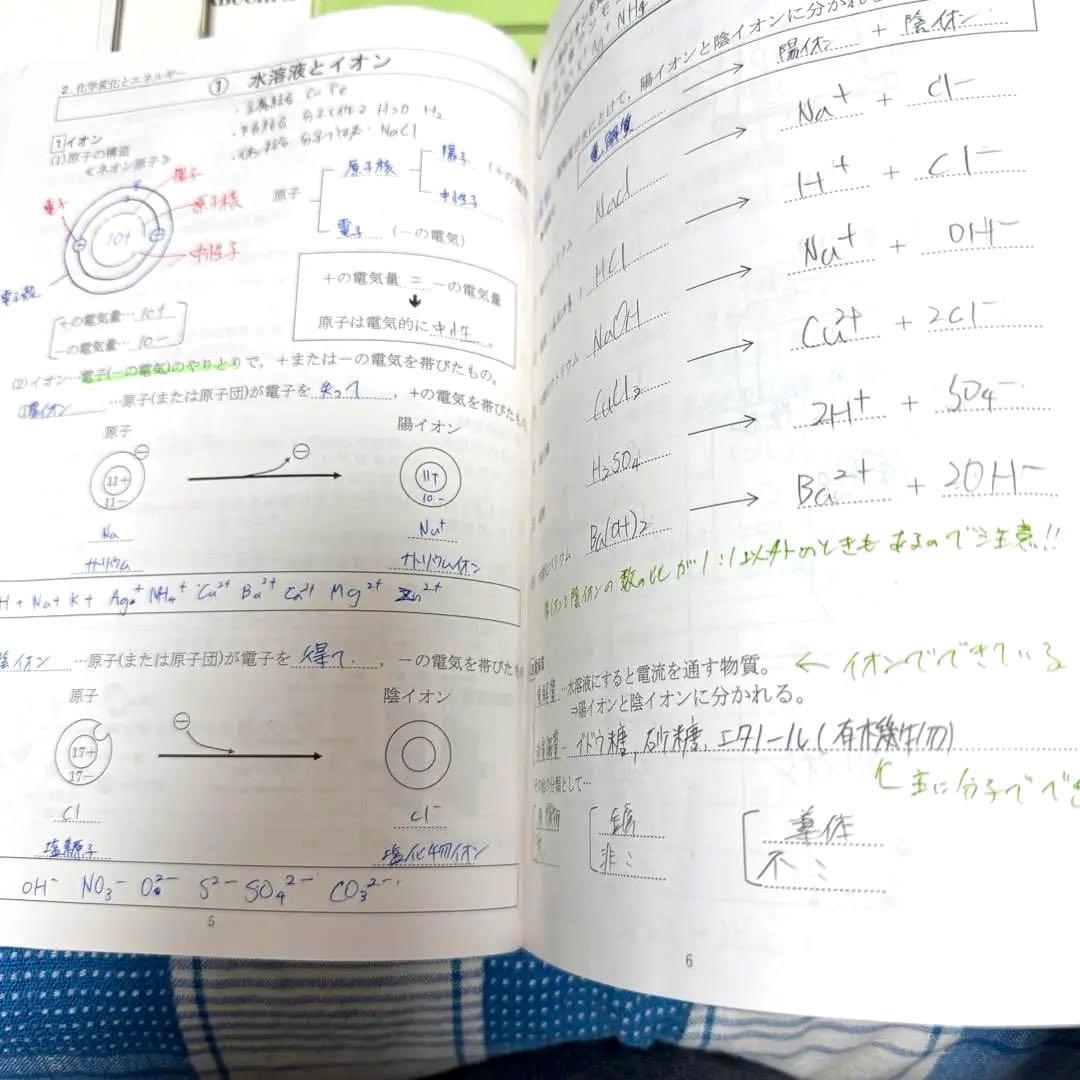 2. 化学変化とエネルギー
① 水溶液とイオン
・金属結合 Cu Fe
H2O H2
NaCl
1 イオン
(1)原子の構造
≪ネオン原子≫
電子
陽子
原子核
中性子
10+
電子殻
原子
原子核
陽子
中性子
電子 (－の電気)
＋の電気量 ＝ －の電気量
原子は電気的に 中性 。
＋の電気量… 10+
－の電気量… 10－
(2)イオン…電子(－の電気)のやりとりで、＋または－の電気を帯びたもの。
①陽イオン …原子(または原子団)が電子を 失って ，＋の電気を帯びたも
原子
陽イオン
11+
11－
11+
10－
Na
Na+
ナトリウム
ナトリウムイオン
H+ Na+ K+ Ag+ NH4+ Cu2+ Ba2+ Ca2+ Mg2+ Zn2+
陰イオン …原子(または原子団)が電子を 得て ，－の電気を帯びた
原子
陰イオン
17+
17－
Cl
Cl－
塩素原子
塩化物イオン
OH－ NO3－ O2－ S2－ SO42－ CO32－
5
NH4
にとけて，陽イオンと陰イオンに分かれ
電解質 → 陽イオン + 陰イオン
NaCl → Na+ + Cl－
HCl → H+ + Cl－
NaOH → Na+ + OH－
CuCl2 → Cu2+ + 2Cl－
H2SO4 → 2H+ + SO4－
Ba(OH)2 → Ba2+ + 2OH－
陽イオンと陰イオンの数の比が1:1以外のときもあるので注意!!
電解質 …水溶液にすると電流を通す物質。 ← イオンでできている
⇒陽イオンと陰イオンに分かれる。
非電解質 … ブドウ糖, 砂糖, エタノール(有機物)
主に分子でで
その他の分類として…
有機物
金属
非〃
導体
不〃
6